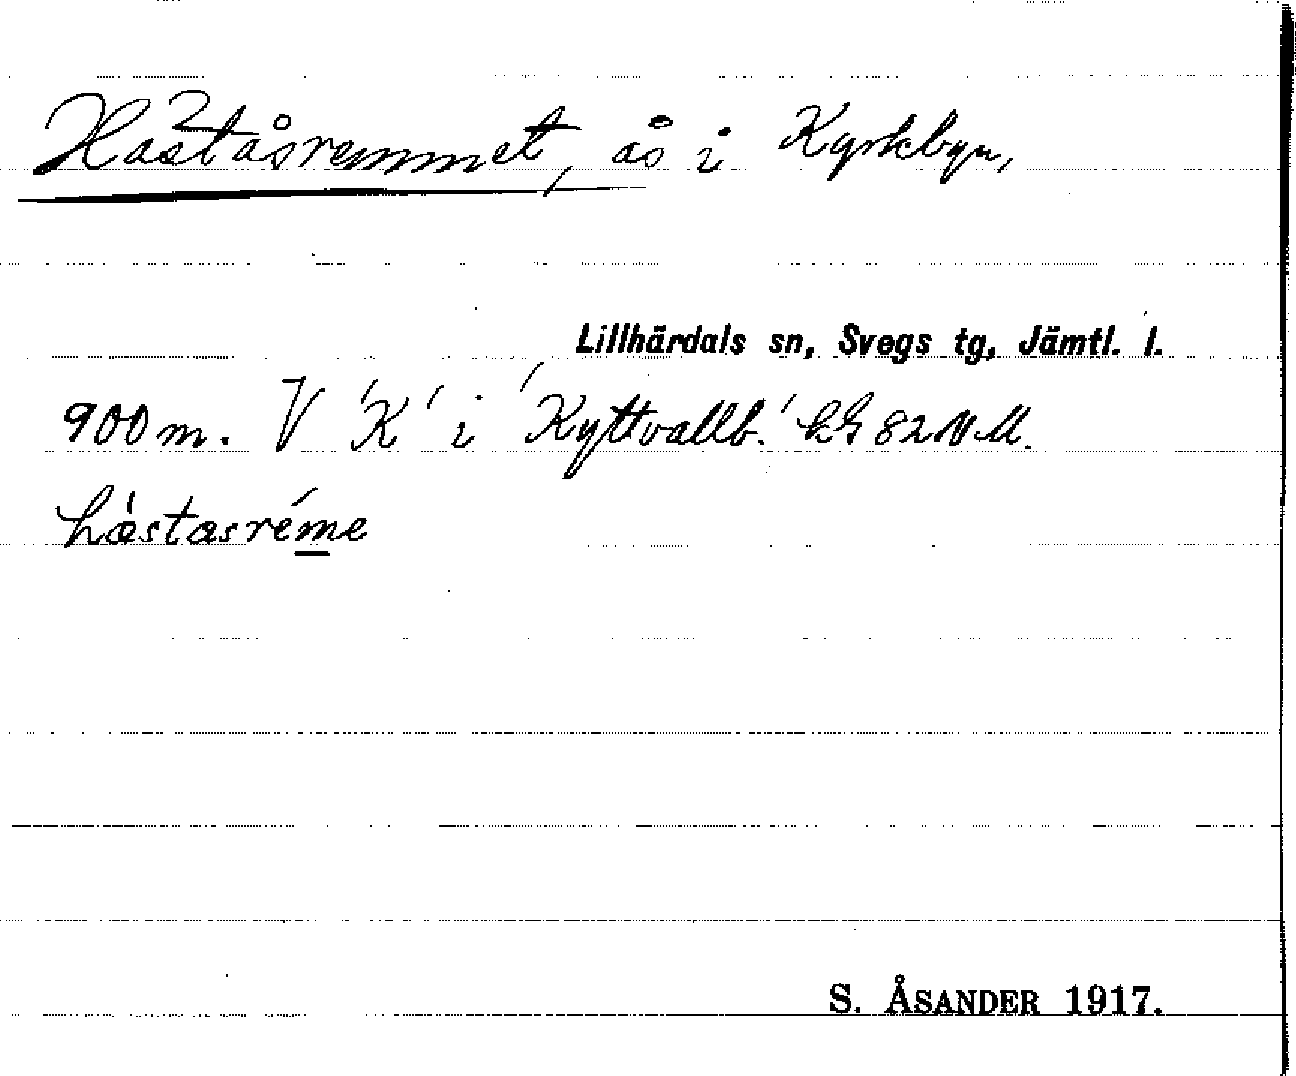 Haståsremmet, ås i Kyrkbyn,
Lillhärdals sn, Svegs tg, Jämtl. l.
900 m. V 'K' i 'Kyttvallb.' 82 NV.
hàstasréme
S. ÅSANDER 1917.